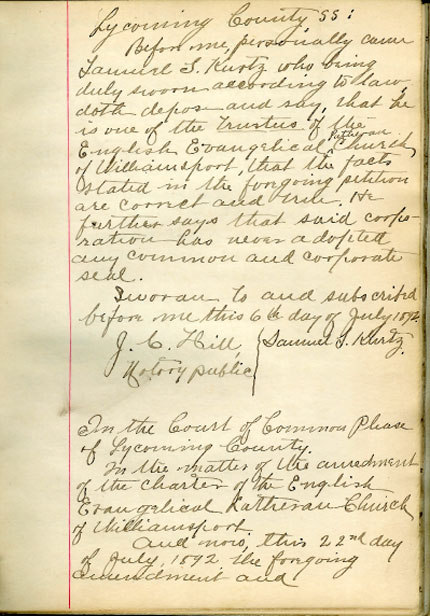 Lycoming County SS:
Before me, personally came
Samuel S. Kurtz who being
duly sworn according to law,
doth depose and say, that he
is one of the trustees of the
English Evangelical Lutheran Church
of Williamsport, that the facts
stated in the forgoing petition
are correct and true. He
further says that said corpo-
ration has never adopted
any common and corporate
seal.
Sworan to and subscribed
before me this 6th day of July 1892.
J. C. Hill, Samuel S. Kurtz.
Notory public
In the Court of Common Please
of Lycoming County.
In the matter of the amedment
of the charter of the English
Evangelical Lutheran Church
of Williamsport
And now, this 22nd day
of July, 1892, the forgoing
amendment and